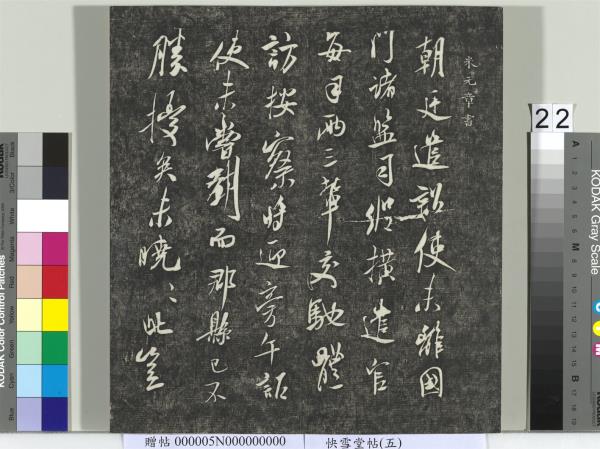 米元章書
朝廷遣詔使未離國
門諸監司縱橫遣官
每司兩三輩交馳體
訪按察將迎旁午詔
使未嘗到而郡縣已不
勝擾矣未曉〻此豈
22
KODAK Color Control Patches
Blue
Cyan
Green
Yellow
Red
Magenta
White
3/Color
Black
KODAK Gray Scale
A 1 2 3 4 5 6 M 8 9 10 11 12 13 14 15 B 17 18 19
贈帖 000005N000000000 快雪堂帖(五)